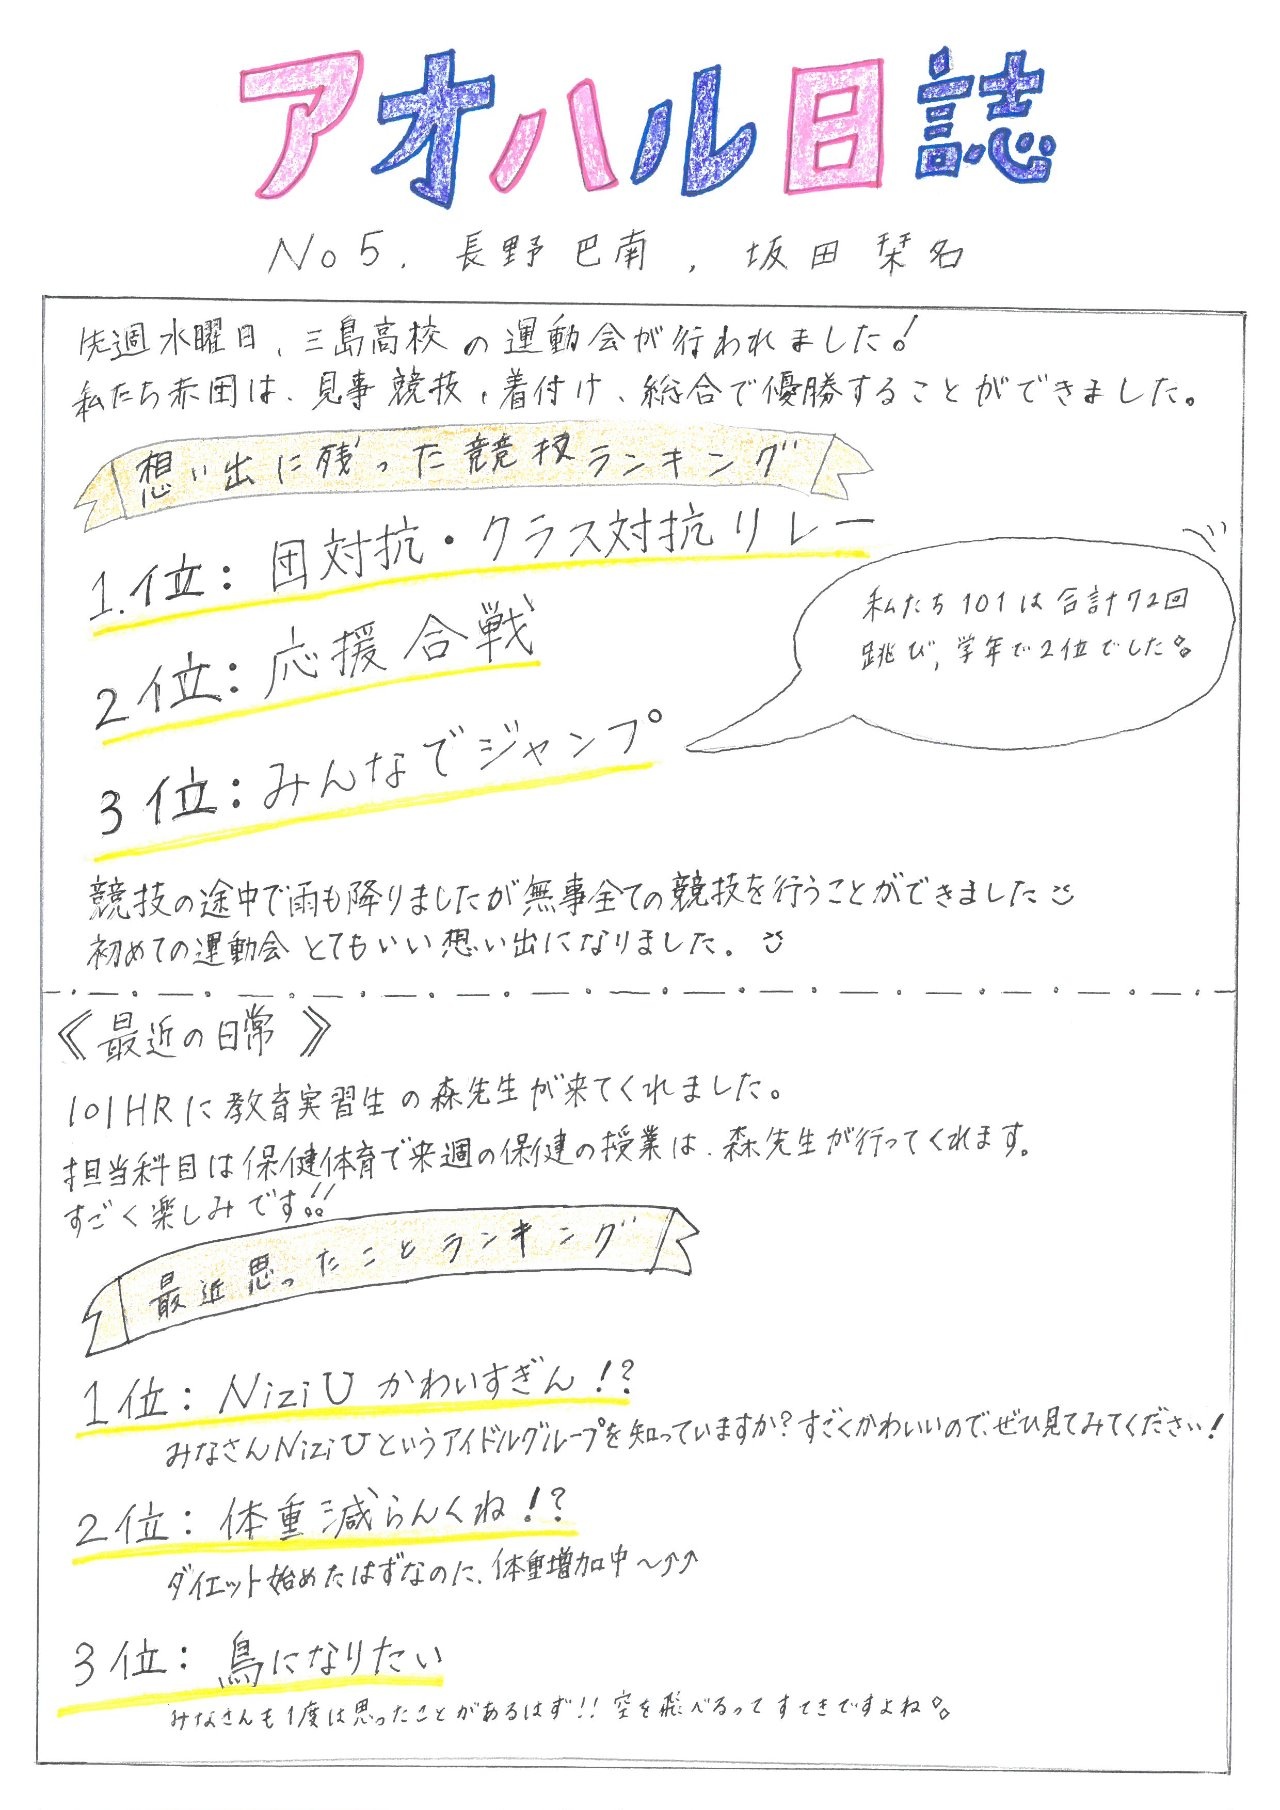 アオハル日誌
No5. 長野巴南, 坂田栞名
先週水曜日、三島高校の運動会が行われました!
私たち赤団は、見事競技、着付け、総合で優勝することができました。
想い出に残った競技ランキング
1.位:団対抗・クラス対抗リレー
2位:応援合戦
3位:みんなでジャンプ
私たち101は合計72回
跳び,学年で2位でした
競技の途中で雨も降りましたが無事全ての競技を行うことができました
初めての運動会とてもいい想い出になりました。
《最近の日常》
101HRに教育実習生の森先生が来てくれました。
担当科目は保健体育で来週の保健の授業は、森先生が行ってくれます。
すごく楽しみです!!
最近思ったことランキング
1位:NiziUかわいすぎん!?
みなさんNiziUというアイドルグループを知っていますか?すごくかわいいので、ぜひ見てみてください!
2位:体重減らんくね!?
ダイエット始めたはずなのに、体重増加中〜↑↑
3位:鳥になりたい
みなさんも1度は思ったことがあるはず!!空を飛べるってすてきですよね